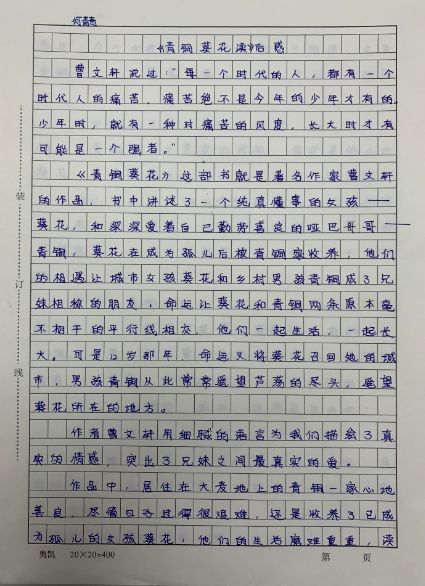 何青青
《青铜葵花》读后感
曹文轩说过："每一个时代的人，都有一个
时代人的痛苦，痛苦绝不是今年的少年才有的。
少年时，就有一种对痛苦的风度，长大时才有
可能是一个强者。"
《青铜葵花》这部书就是著名作家曹文轩
的作品，书中讲述了一个纯真懂事的女孩——
葵花，和深深爱着自己勤劳善良的哑巴哥哥——
青铜，葵花在成为孤儿后被青铜家收养，他们
的相遇让城市女孩葵花和乡村男孩青铜成了兄
妹相称的朋友，命运让葵花和青铜两条原本毫
不相干的平行线相交，他们一起生活，一起长
大。可是12岁那年，命运又将葵花召回她的城
市，男孩青铜从此常常遥望芦荡的尽头，遥望
葵花所在的地方。
作者曹文轩用细腻的语言为我们描绘了真
实的情感，突出了兄妹之间最真实的爱。
作品中，居住在大麦地上的青铜一家心地
善良，尽管日子过得很艰难，还是收养了已成
为孤儿的女孩葵花，他们的生活磨难重重，谈
装
订
线
奥凯 20×20=400
第 页